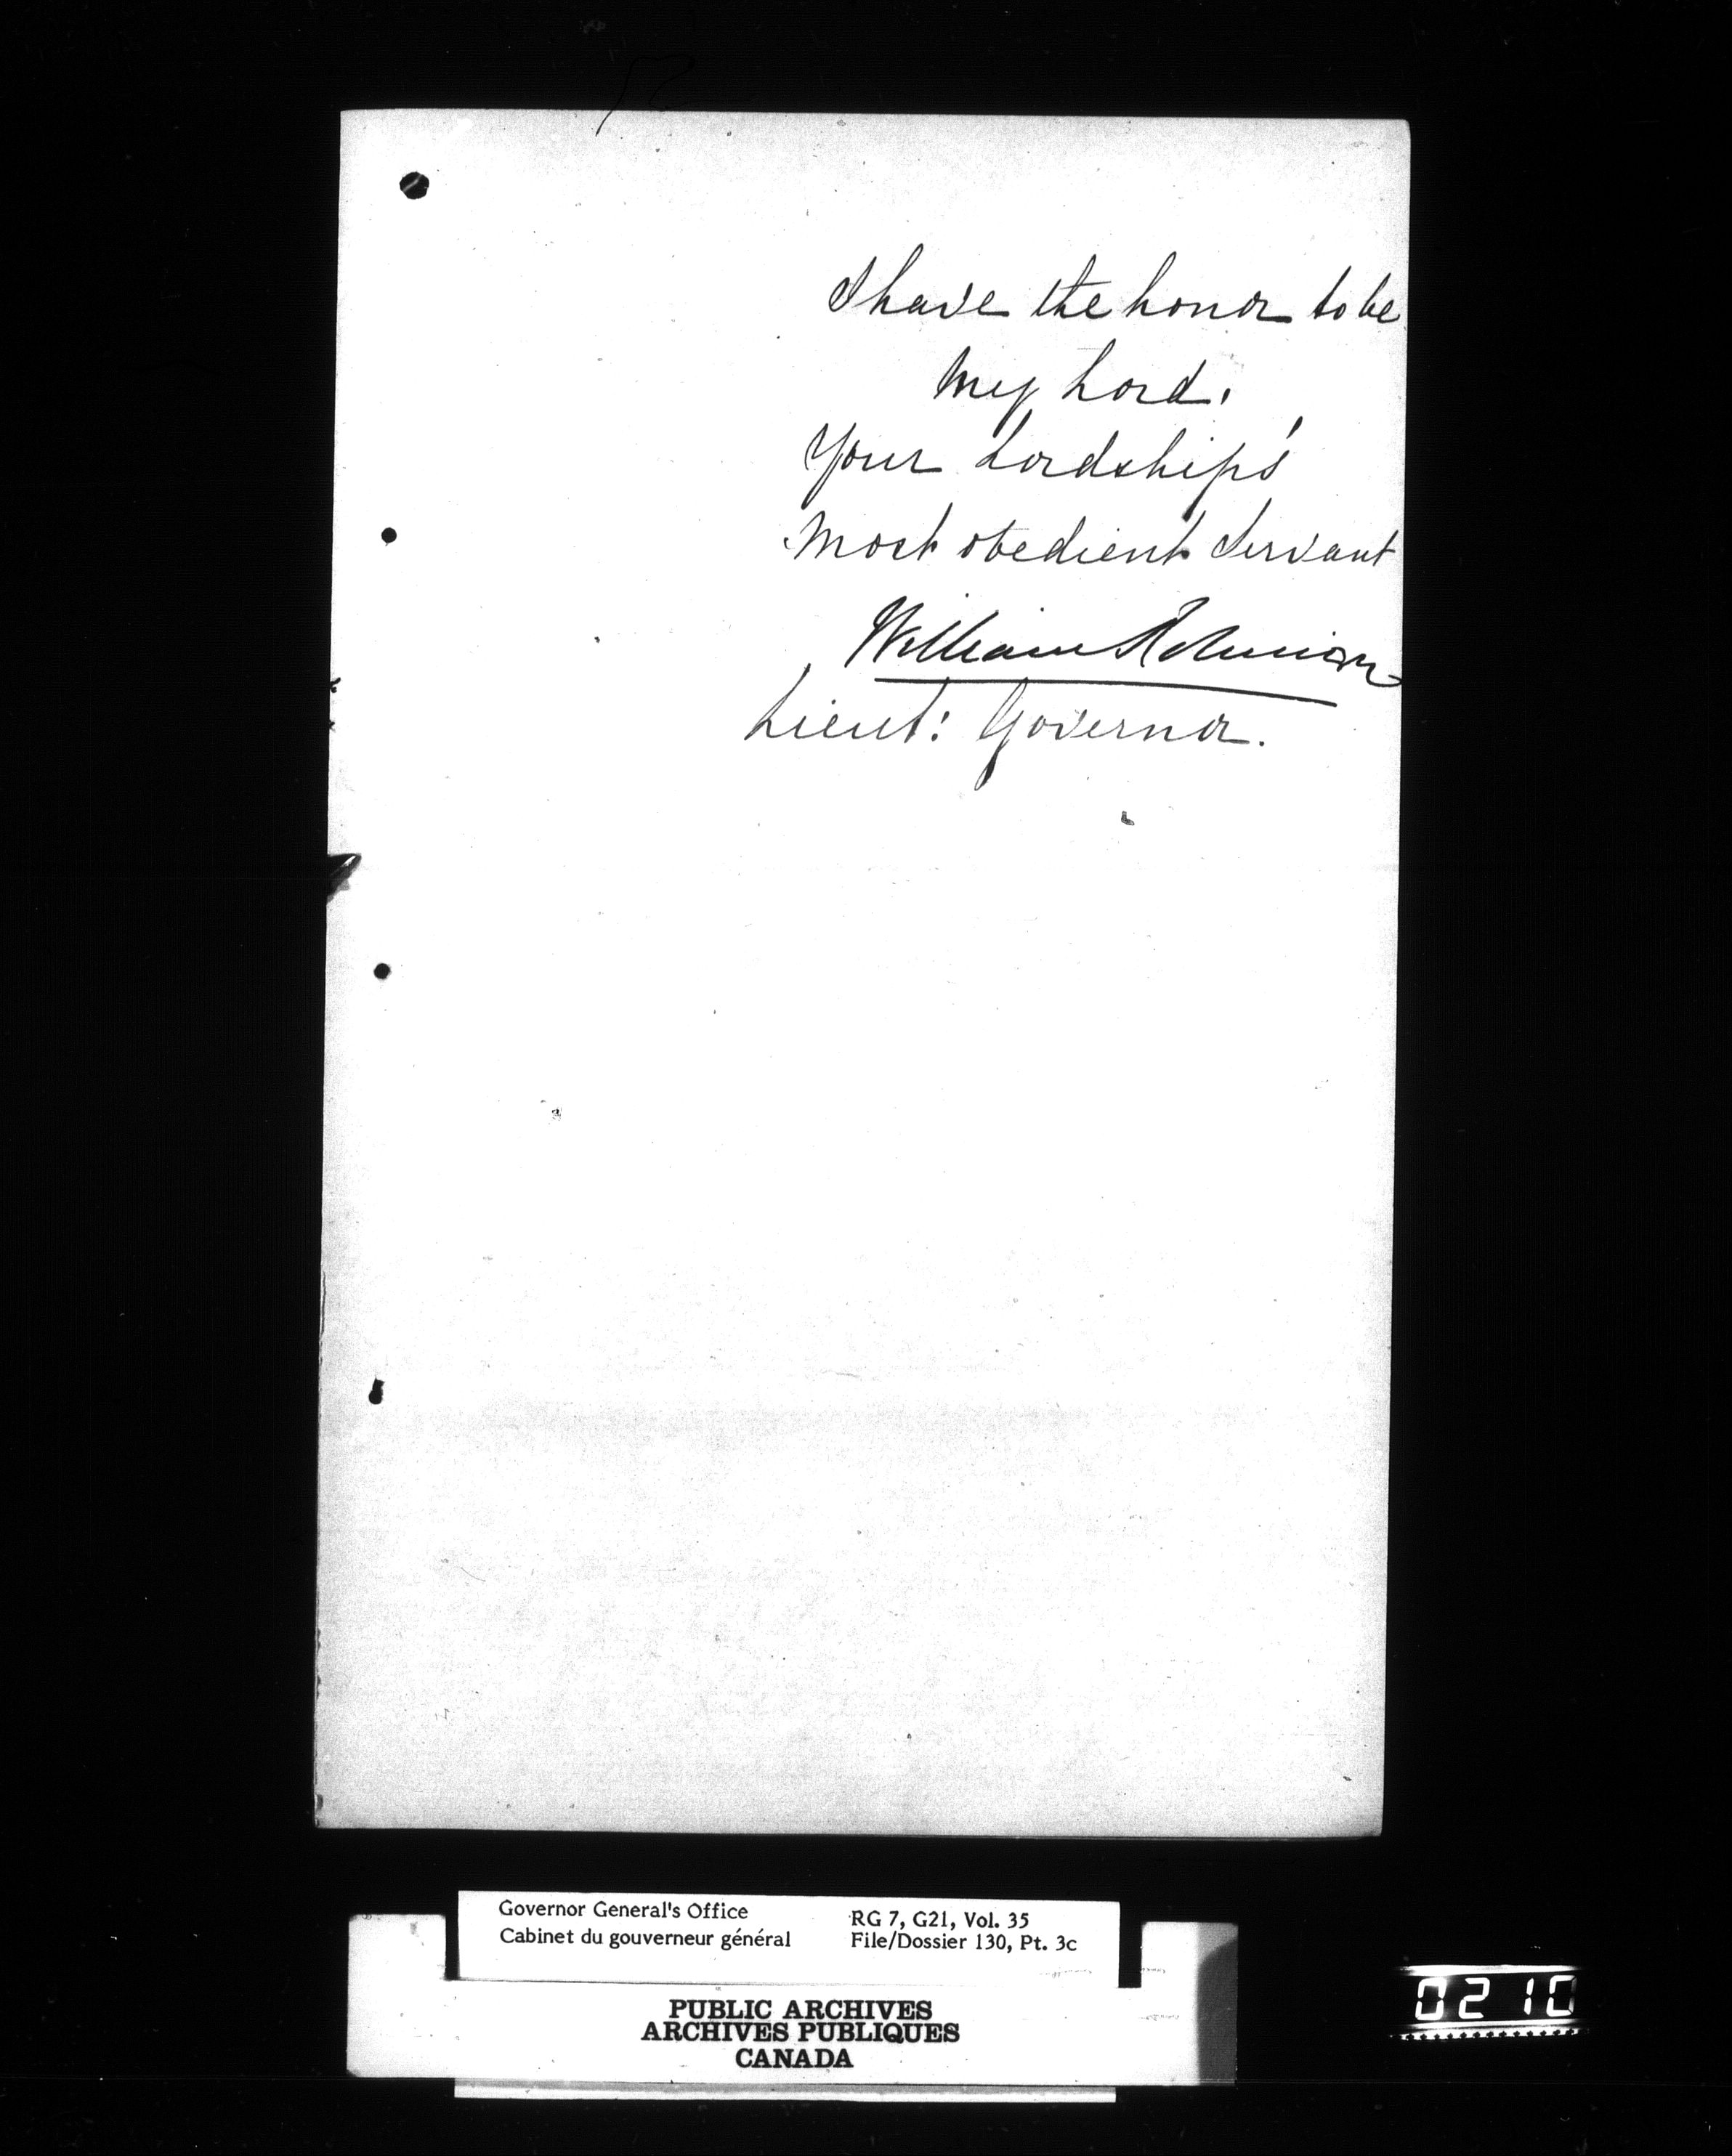 I have the honor to be
My Lord,
Your Lordships'
Most obedient Servant
William Robinson
Lieut: Governor.
Governor General's Office
Cabinet du gouverneur général
RG 7, G21, Vol. 35
File/Dossier 130, Pt. 3c
PUBLIC ARCHIVES
ARCHIVES PUBLIQUES
CANADA
0210